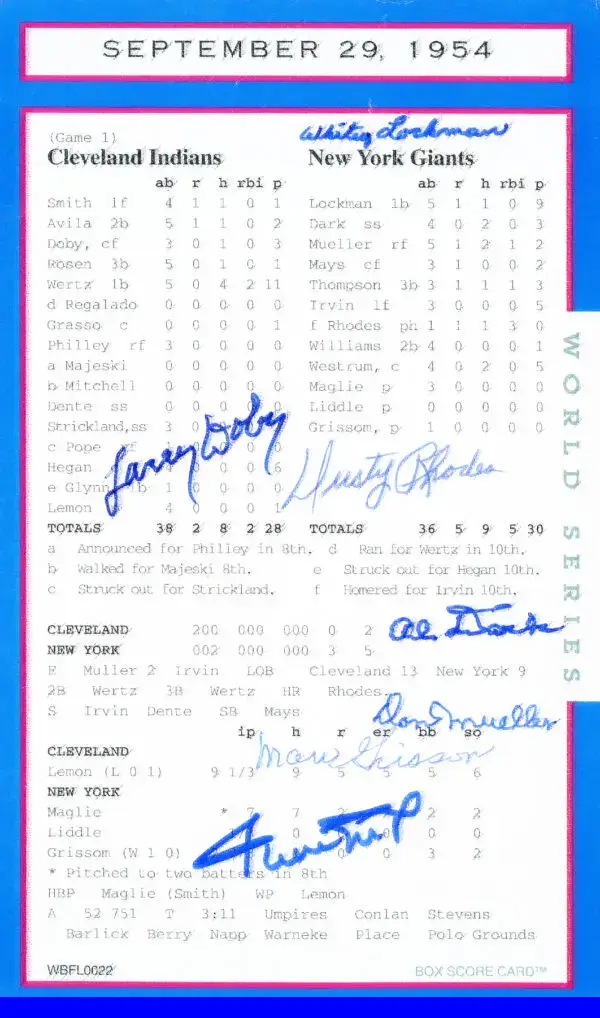 SEPTEMBER 29, 1954
Whitey Lockman
(Game 1)
Cleveland Indians
ab r h rbi p
Smith lf 4 1 1 0 1
Avila 2b 5 1 1 0 2
Doby, cf 3 0 1 0 3
Rosen 3b 5 0 1 0 1
Wertz 1b 5 0 4 2 11
d Regalado 0 0 0 0 0
Grasso c 0 0 0 0 1
Philley rf 3 0 0 0 0
a Majeski 0 0 0 0 0
b Mitchell 0 0 0 0 0
Dente ss 0 0 0 0 0
Strickland,ss 3 0
c Pope
Hegan 0 0 0 6
e Glynn 1 0 0 0 0
Lemon 4 0 0 0 1
TOTALS 38 2 8 2 28
Larry Doby
New York Giants
ab r h rbi p
Lockman 1b 5 1 1 0 9
Dark ss 4 0 2 0 3
Mueller rf 5 1 2 1 2
Mays cf 3 1 0 0 2
Thompson 3b 3 1 1 1 3
Irvin lf 3 0 0 0 5
f Rhodes ph 1 1 1 3 0
Williams 2b 4 0 0 0 1
Westrum, c 4 0 2 0 5
Maglie p 3 0 0 0 0
Liddle p 0 0 0 0 0
Grissom, p 1 0 0 0 0
Dusty Rhodes
TOTALS 36 5 9 5 30
WORLD SERIES
a Announced for Philley in 8th. d Ran for Wertz in 10th.
b Walked for Majeski 8th. e Struck out for Hegan 10th.
c Struck out for Strickland. f Homered for Irvin 10th.
CLEVELAND 200 000 000 0 2
Al Dark
NEW YORK 002 000 000 3 5
E Muller 2 Irvin LOB Cleveland 13 New York 9
2B Wertz 3B Wertz HR Rhodes.
S Irvin Dente SB Mays
Don Mueller
ip h r er bb so
CLEVELAND
Marv Grissom
Lemon (L 0 1) 9 1/3 9 5 5 5 6
NEW YORK
Maglie * 7 7 2 2 2
Liddle 0 0 0 0
Grissom (W 1 0) 0 0 3 2
Willie Mays
* Pitched to two batters in 8th
HBP Maglie (Smith) WP Lemon
A 52 751 T 3:11 Umpires Conlan Stevens
Barlick Berry Napp Warneke Place Polo Grounds
WBFL0022
BOX SCORE CARD™